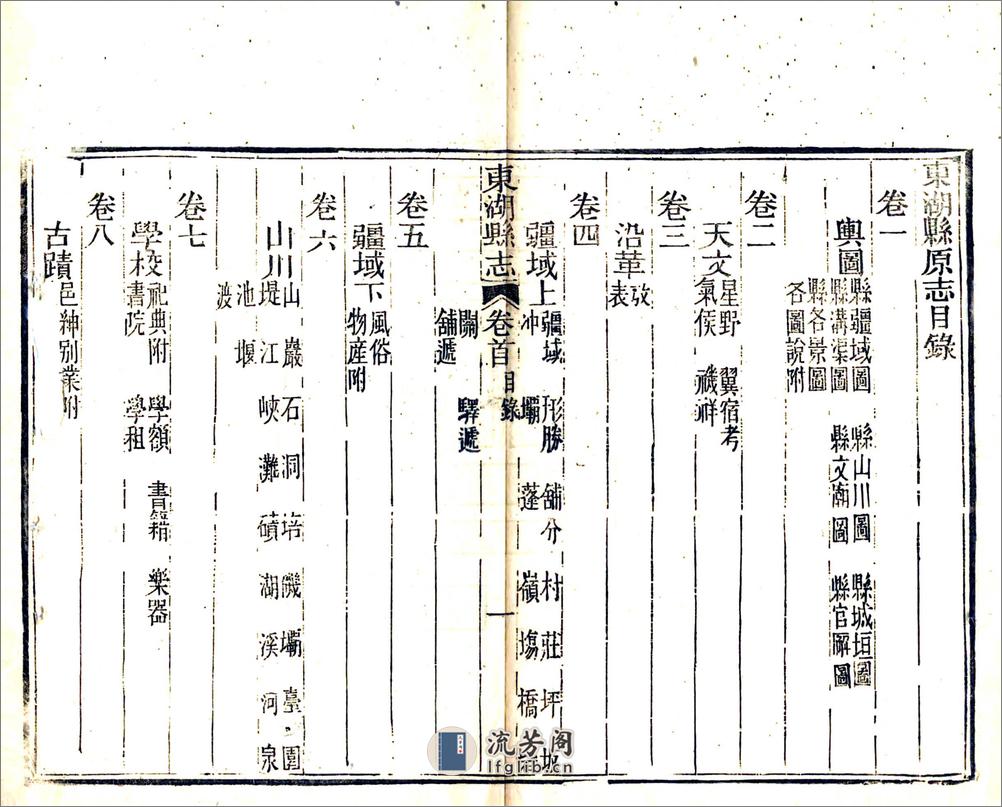 東湖縣原志目錄
卷一
輿圖 縣疆域圖 縣山川圖 縣城垣圖
縣溝渠圖 縣文廟圖 縣官廨圖
縣各景圖
各圖說附
卷二
天文 星野 翼宿考
氣候 禨祥
卷三
沿革 攷
表
卷四
疆域上 疆域 形勝 舖分 村莊 坪
冲 壩 蓬 嶺 塲 橋
關 驛遞
舖遞
東湖縣志 卷首 目錄 一
卷五
疆域下 風俗
物産附
卷六
山川 山巖石洞培磯壩臺園
堤江峽灘磧湖溪河泉
池堰
渡
卷七
學校 祀典附 學額 書籍 樂器
書院 學租
卷八
古蹟 邑紳別業附
流芳阁
lfglib.cn